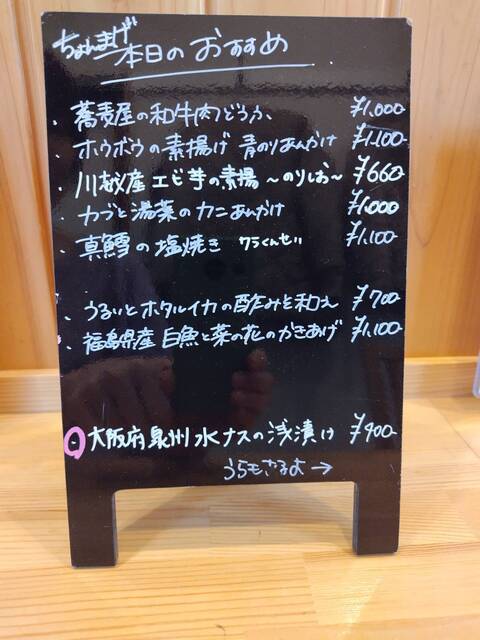 ちょんまげ 本日のおすすめ
・蕎麦屋の和牛肉どうふ ¥1,000
・ホウボウの素揚げ 青のりあんかけ ¥1,100-
・川越産エビ芋の素揚 〜のりしお〜 ¥660
・カブと湯葉のカニあんかけ ¥1,000
・真鱈の塩焼き
・うるいとホタルイカの酢みそ和え ¥700
・福島県産 白魚と菜の花のかきあげ ¥1,100-
・大阪府泉州水ナスの浅漬け ¥900-
うらもあるよ→